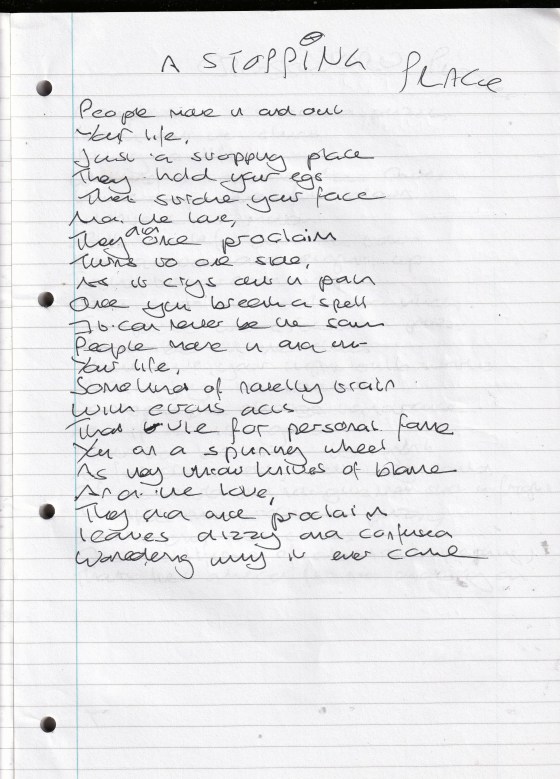 A STOPPING PLACE
People move in and out
Your life,
Just a stopping place
They hold your
That stroke your face
And the love,
They did once proclaim
Turns to one side,
As it crys out in pain
Once you break a spell
It can never be the same
People move in and out
Your life,
Some kind of novelty train
With circus acts
That for personal fame
You on a spinning wheel
As they throw knives of blame
And the love,
They did once proclaim
leaves dizzy and confused
Wondering why it ever came